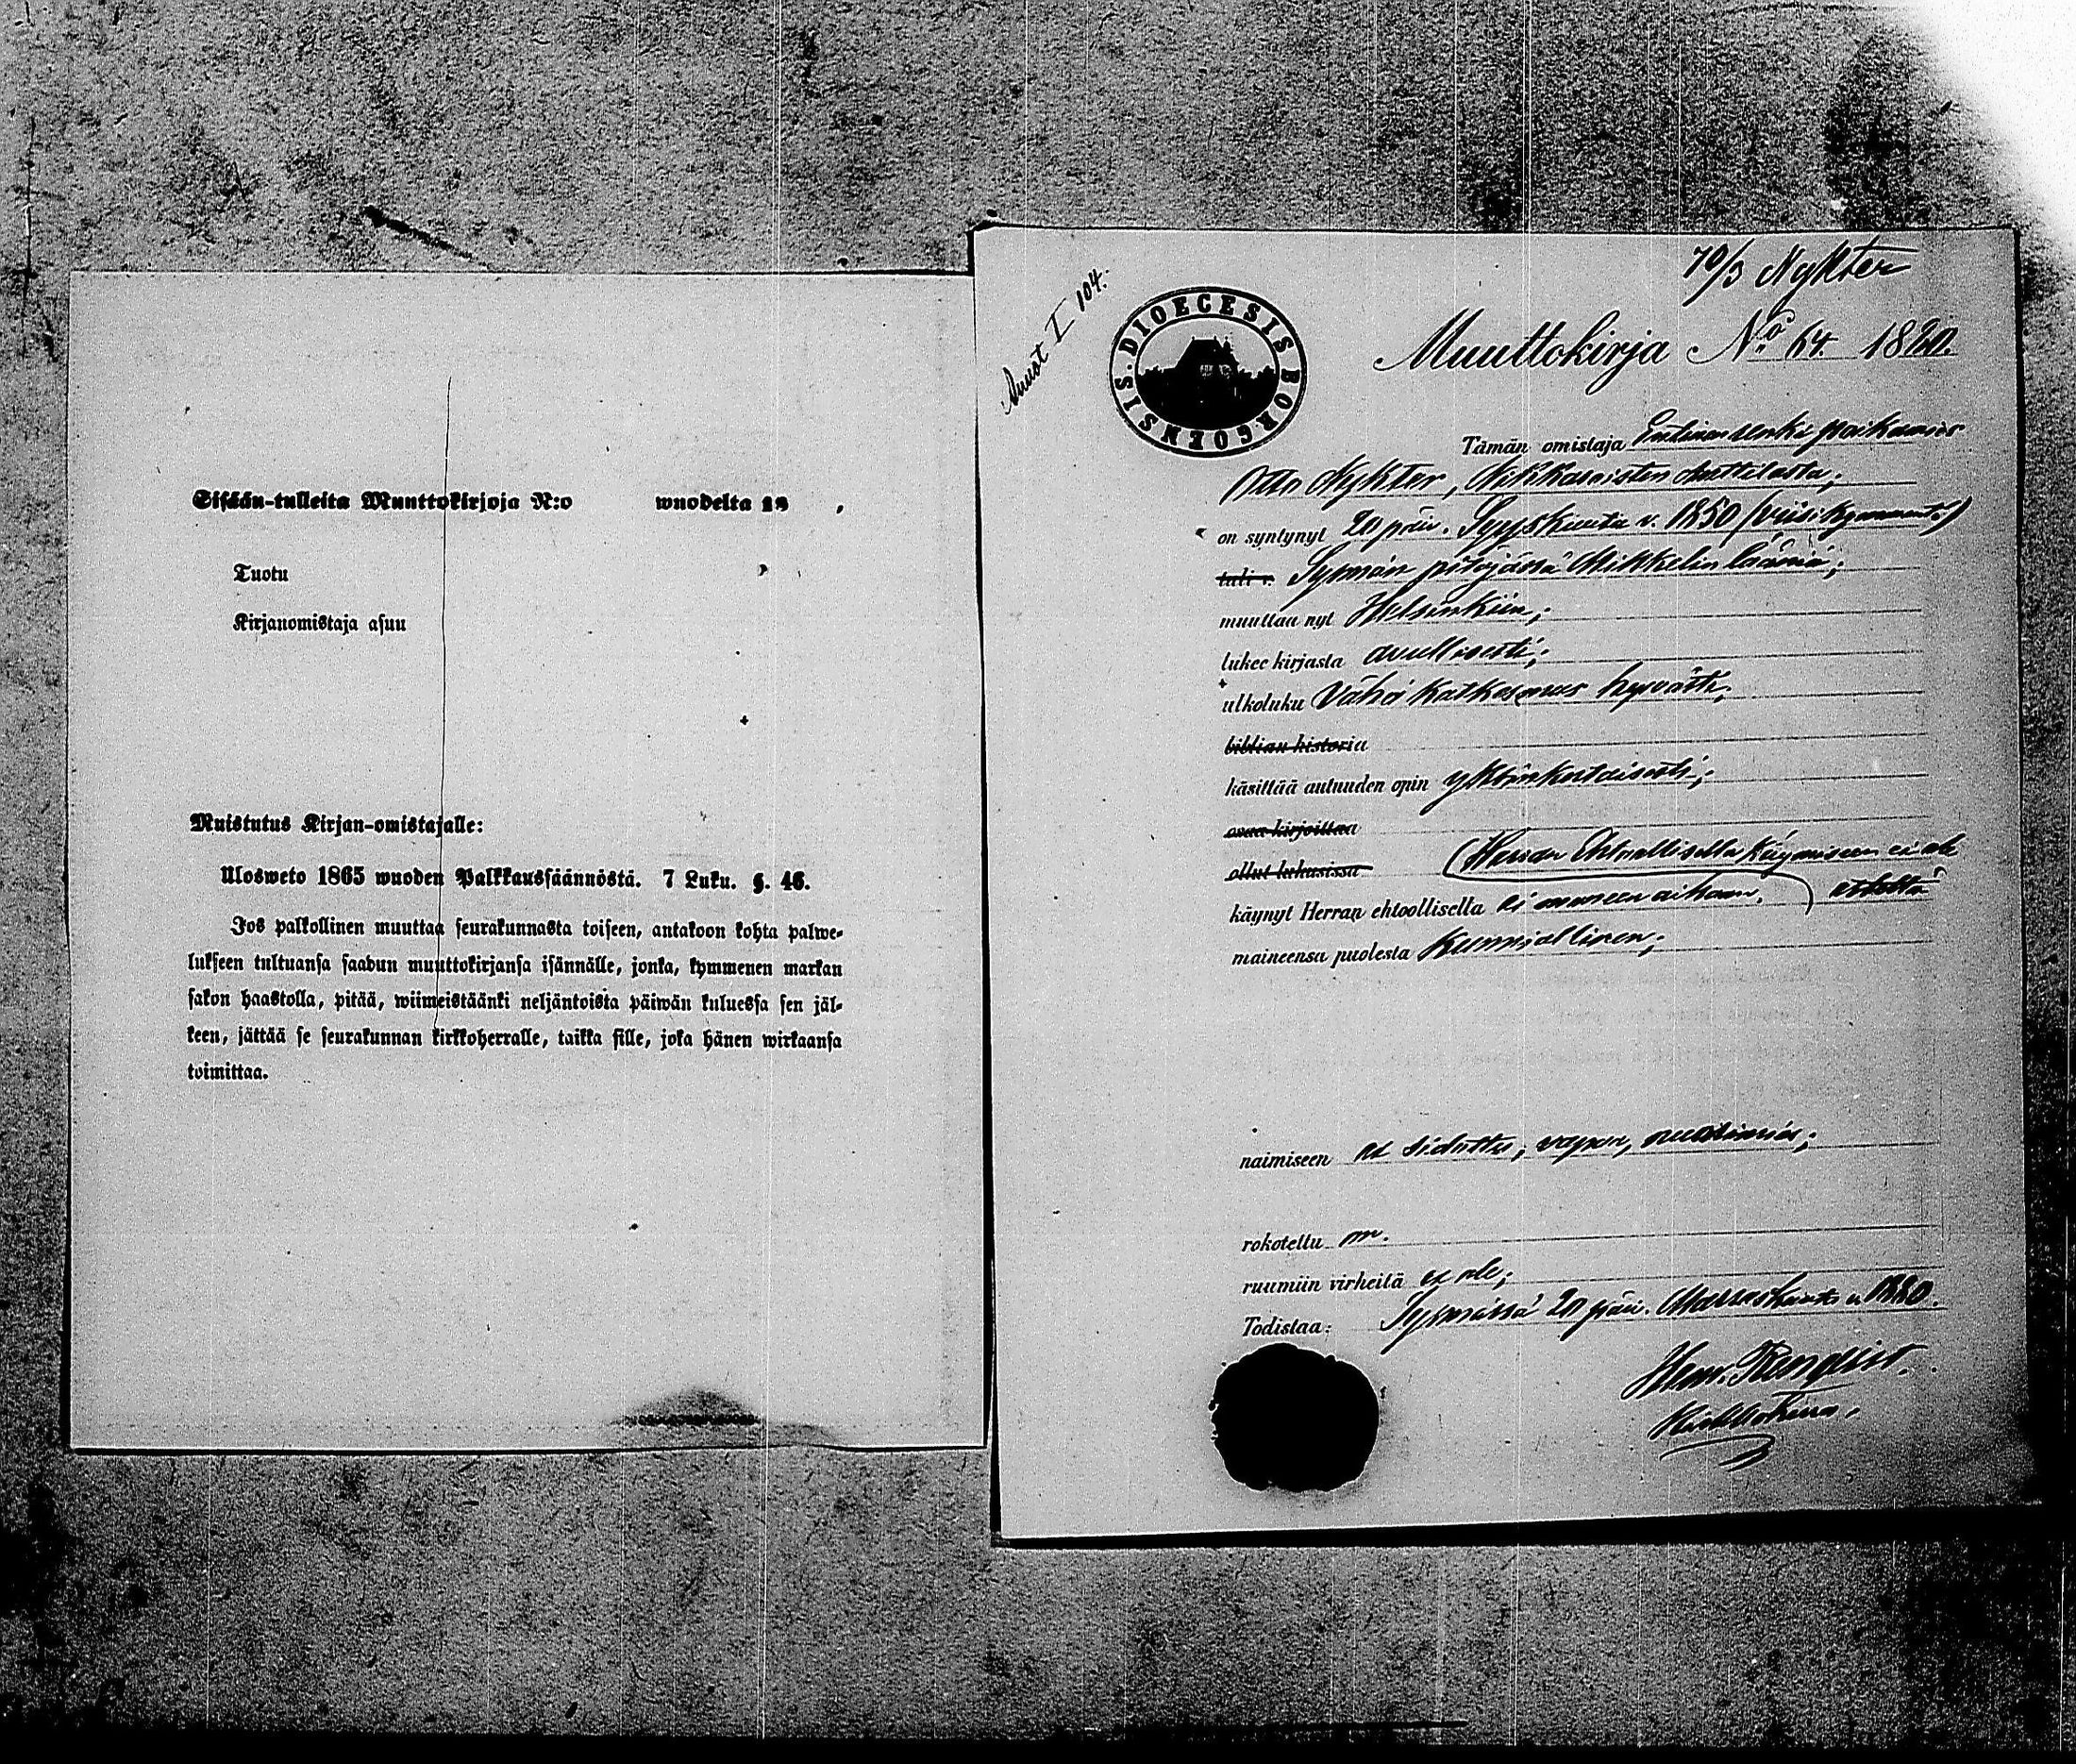 Sisään-tulleita Muuttokirjoja N:o wuodelta 18
Tuotu
Kirjanomistaja asuu
Muistutus Kirjan-omistajalle:
Ulosweto 1865 wuoden Palkkaussäännöstä. 7 Luku. §. 46.
Jos palkollinen muuttaa seurakunnasta toiseen, antakoon kohta palwe-
lukseen tultuansa saadun muuttokirjansa isännälle, jonka, kymmenen markan
sakon haastolla, pitää, wiimeistäänki neljäntoista päiwän kuluessa sen jäl-
keen, jättää se seurakunnan kirkkoherralle, taikka sille, joka hänen wirkaansa
toimittaa.
70/3 Nykter
I 104.
SIS. DIOECESIS BORGOENSIS
Muuttokirja No 64. 1880.
Tämän omistaja Entinen renki
Otto Nykter, Nikkaroisten Anttilasta;
on syntynyt 20 päiv. Syyskuuta v. 1850 (viisikymmentä)
tuli v. Sysmän pitäjässä Mikkelin lääniä;
muuttaa nyt Helsinkiin;
lukee kirjasta avullisesti;
ulkoluku Vähä katkesmus hyvästi;
biblian historia
käsittää autuuden opin yksinkertaisesti;
osaa kirjoittaa
ollut lukusissa (Herran Ehtoollisella käymiseen ei ole
käynyt Herran ehtoollisella ei muuseen aikaan, estettä
maineensa puolesta kunniallinen;
naimiseen ei sidottu, vapaa, nuorimies;
rokotettu on.
ruumiin virheitä ei ole;
Todistaa: Sysmässä 20 päiv. Maaliskuuta v. 1880.